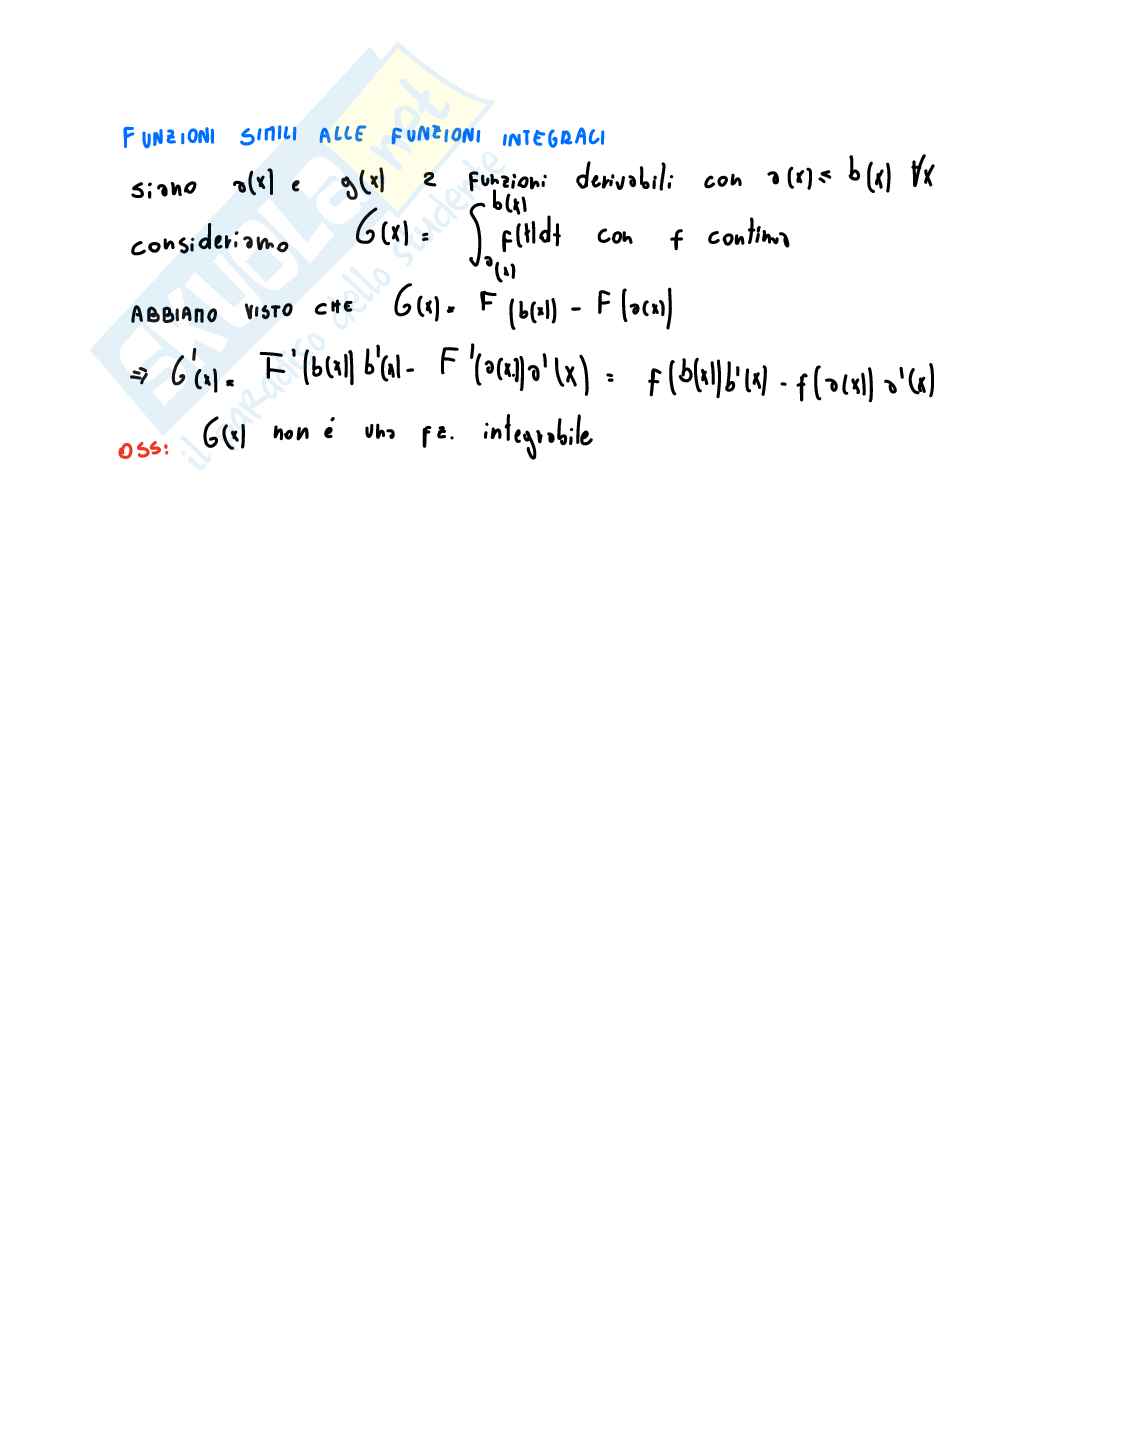 FUNZIONI SIMILI ALLE FUNZIONI INTEGRALI
siano a(x) e g(x) 2 funzioni derivabili con a(x) ≤ b(x) ∀x
consideriamo G(x) = ∫_{a(x)}^{b(x)} f(t)dt con f continua
ABBIAMO VISTO CHE G(x) = F(b(x)) - F(a(x))
⇒ G'(x) = F'(b(x)) b'(x) - F'(a(x)) a'(x) = f(b(x)) b'(x) - f(a(x)) a'(x)
OSS: G(x) non é una fz. integrabile
SKUOLA.net
il paradiso dello studente